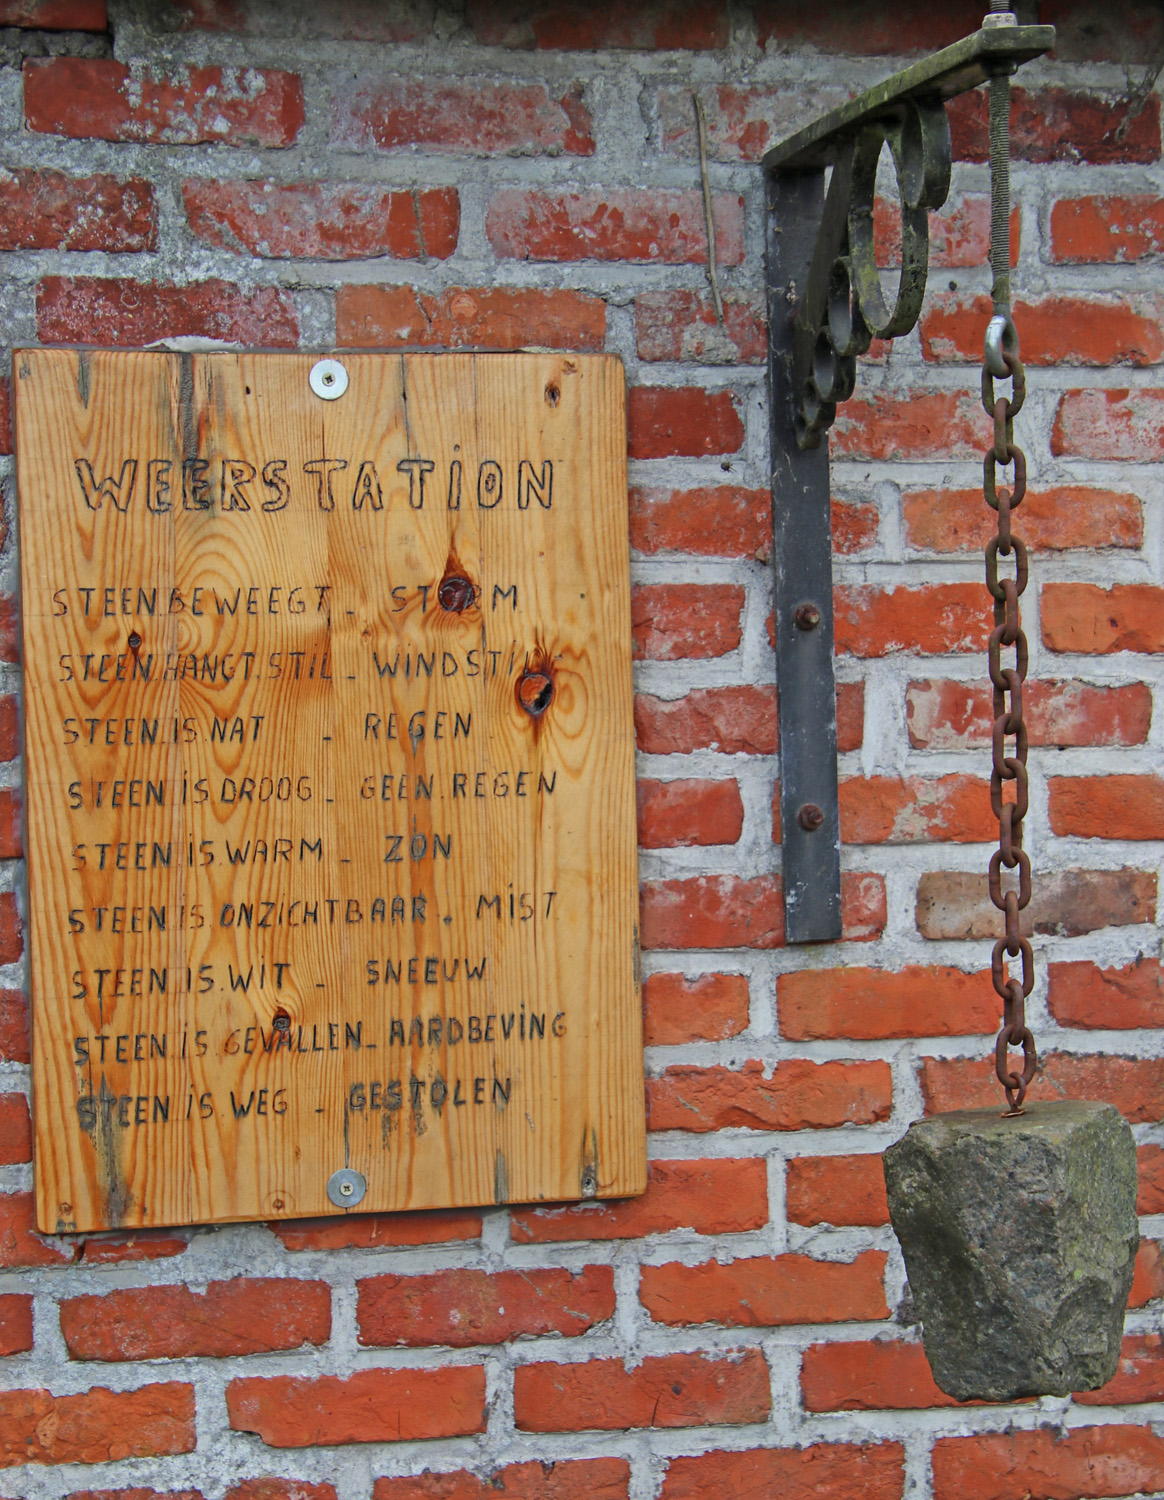 WEERSTATION
STEEN.BEWEEGT_ STORM
STEEN.HANGT.STIL_ WINDSTIL
STEEN.IS.NAT _ REGEN
STEEN.IS.DROOG_ GEEN.REGEN
STEEN.IS.WARM _ ZON
STEEN.IS.ONZICHTBAAR. MIST
STEEN.IS.WIT _ SNEEUW
STEEN.IS.GEVALLEN_ AARDBEVING
STEEN.IS.WEG _ GESTOLEN